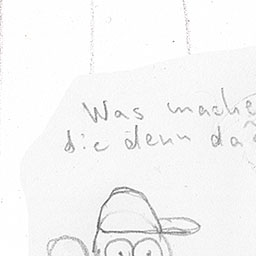 Was mache
die denn da